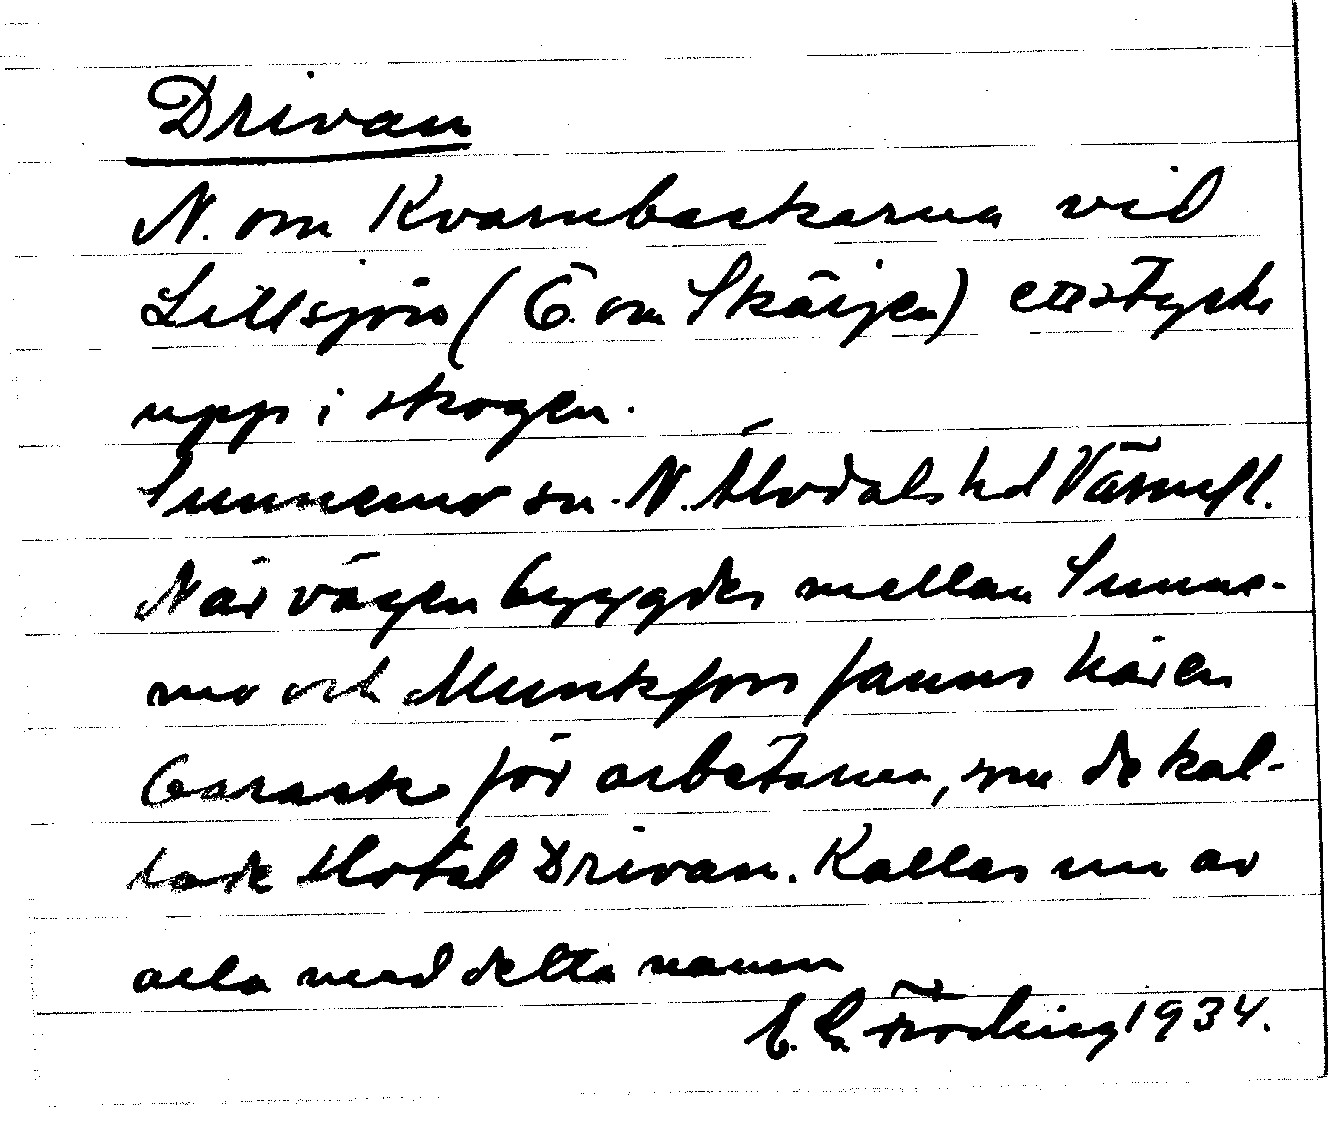 Drivan
N. om Kvarnbackarna vid
Lillsjön (Ö. om Skärjen) ett stycke
upp i skogen.
Sunnemo sn. N. Älvdals hd Värml.
När vägen byggdes mellan Sunne-
mo och Munkfors fanns här en
barack för arbetarna, som de kal-
lade Hotäl Drivan. Kallas nu av
alla med detta namn
E. G. Fröding 1934.